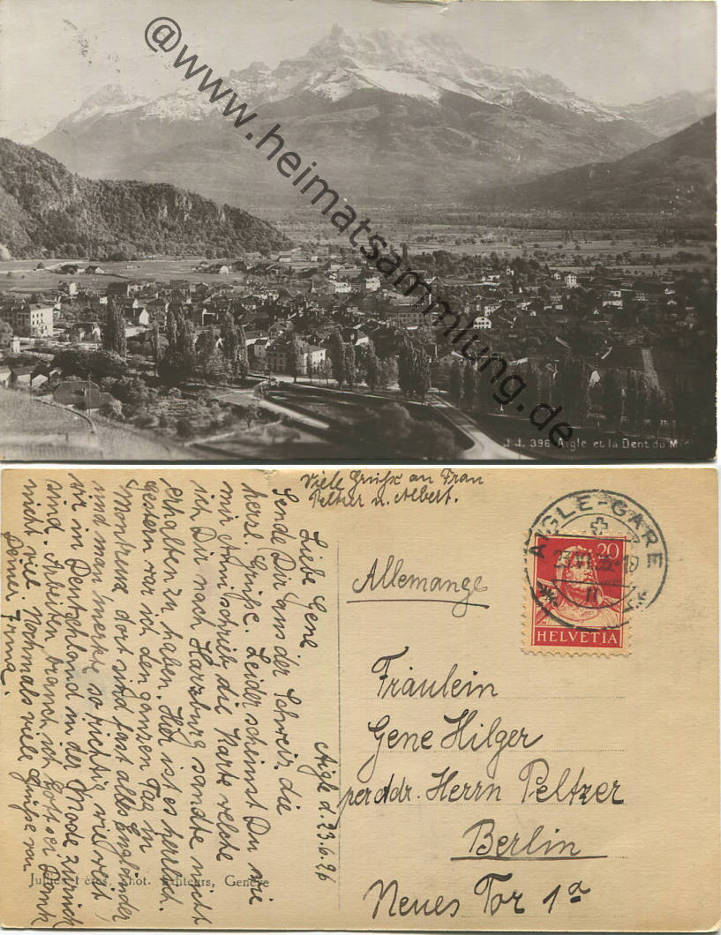 @www.heimatsammlung.de
J.J. 396. Aigle et la Dent du Midi
Viele Grüße an Frau
Peltzer u. Albert.
Aigle d. 23.6.26
Liebe Gene
Sende Dir aus der Schweiz die
herzl. Grüße. Leider scheinst Du wie
mir Anni schrieb die Karte welche
ich Dir nach Harzburg sandte nicht
erhalten zu haben. Hier ist es herrlich.
Gestern war ich den ganzen Tag in
Montreux dort sind fast alles Engländer
und man merkt so richtig wie weit
wir in Deutschland in der Mode zurück
sind. Arbeiten brauch ich Gott sei Dank
nicht viel. Nochmals viele Grüße von
Deiner Irma.
Allemange
Fräulein
Gene Hilger
per adr. Herrn Peltzer
Berlin
Neues Tor 1a
AIGLE-GARE
20
HELVETIA
Phot. Editeurs, Genève